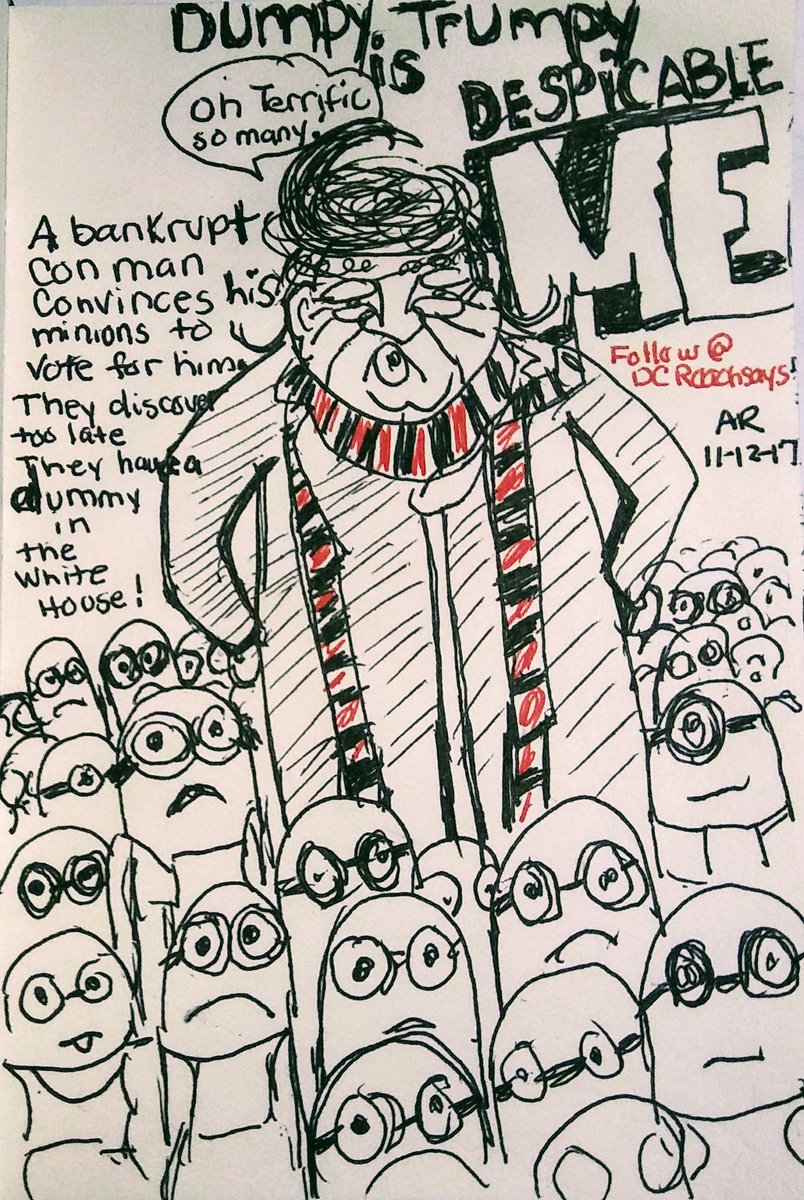 DUMPY TRUMPY
is
DESPICABLE
ME
Oh Terrific
so many.
A bankrupt
con man
convinces his
minions to
vote for him.
They discover
too late
They have a
dummy
in
the
White
House!
Follow @
DC Roachsays!
AR
11-12-17